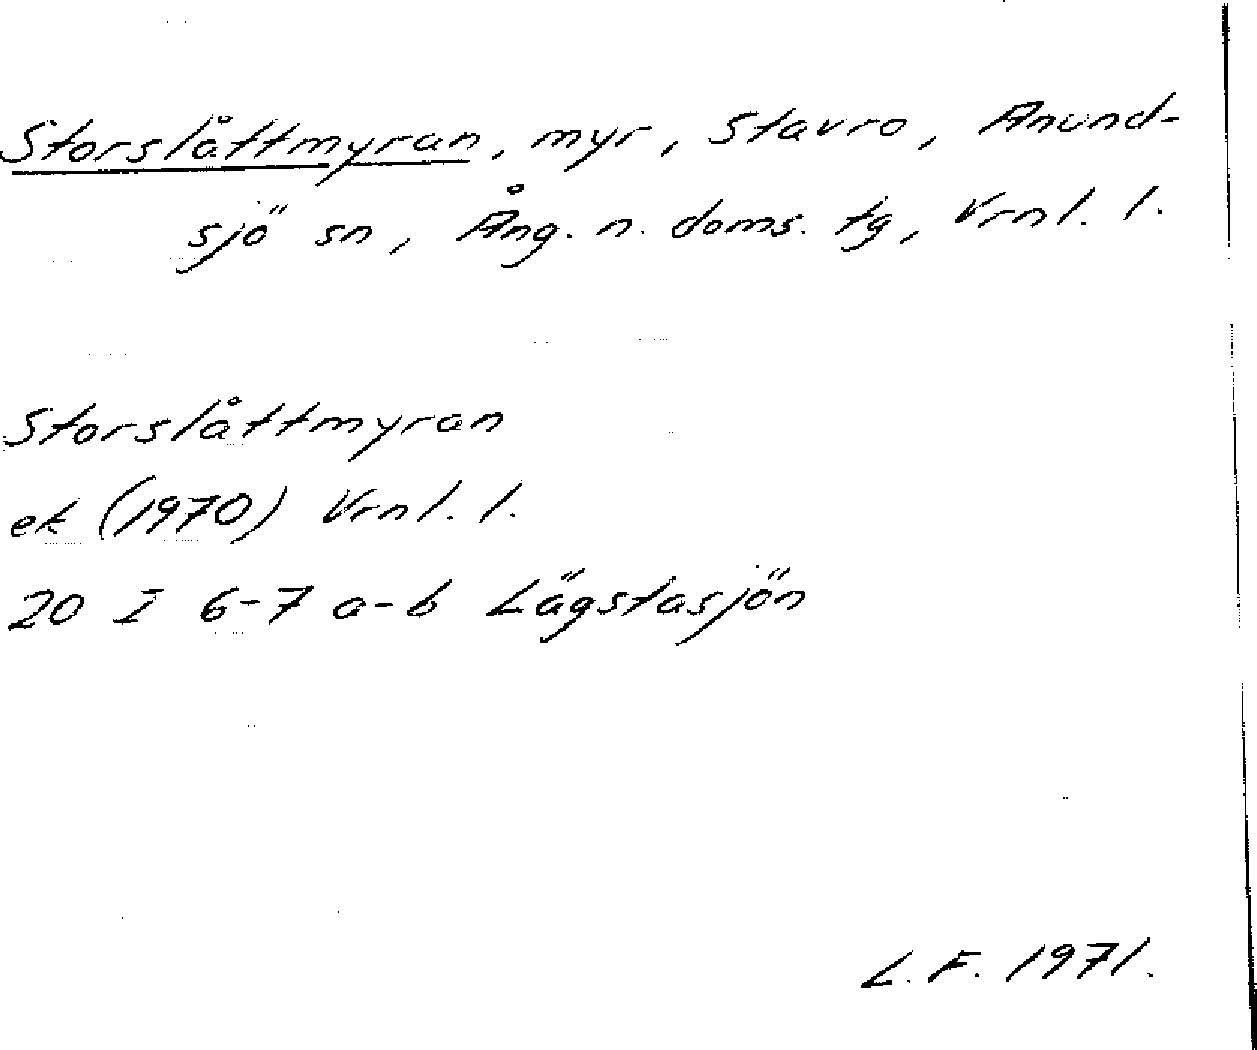 Storslåttmyran, myr, Stavro, Anund-
sjö sn, Ång. n. doms. tg, Vrnl. l.
Storslåttmyran
ek (1970) Vrnl. l.
20 I 6-7 a-b Lägstasjön
L.F. 1971.